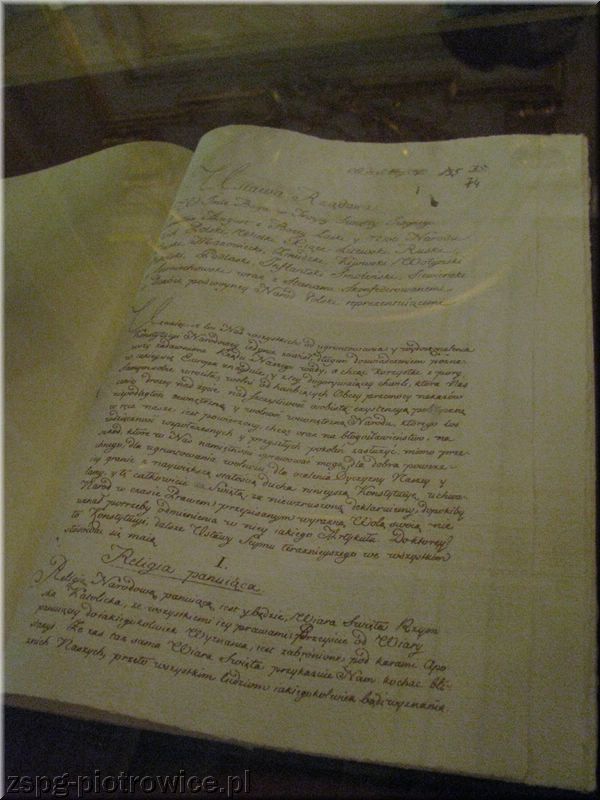 155 35
74
Ustawa Rządowa
W Imie Boga w Troycy Swiętey Iedynego
Август z Bozey Łaski y Woli Narodu
Polski, Wielki Xiąże Litewski, Ruski
Mazowiecki, Zmudzki, Kijowski, Wołyński
Podlaski, Inflantski, Smoleński, Siewierski
Czerniechowski wraz z Stanami Skonfederowanemi
podwoyney Naród Polski reprezentuiącemi
Uznaiąc, iż los Nas wszystkich od ugruntowania y wydoskonalenia
Konstytucyi Narodowey iedynie zawisł, długim doświadczeniem pozna-
wszy zadawnione Rządu Naszego wady, a chcąc korzystać z pory
w iakiey się Europa znayduie, y z tey dogorywaiącey chwili, która Nas
Samym sobie wróciła, wolni od hańbiących Obcey przemocy nakazów
ceniąc drożey nad życie, nad szczęśliwość osobistą exystencyą polityczną
niepodległość zewnętrzną y wolność wewnętrzną Narodu, którego los
w ręce nasze iest powierzony, chcąc oraz na błogosławieństwo, na
wdzięczność współczesnych y przyszłych pokoleń zasłużyć, mimo prze-
szkód, które w Nas namiętności sprawować mogą, dla dobra powsze-
chnego, dla ugruntowania wolności, dla ocalenia Oyczyzny Naszey y
iey granic z naywiększą stałością ducha ninieyszą Konstytucyę uchwa-
lamy, y tę całkowicie za Swiętą, za niewzruszoną deklaruiemy, dopókiby
Naród w czasie Prawem przepisanym wyraźną Wolą swoią nie
uznał potrzeby odmienienia w niey iakiego Artykułu. Do ktorey
to Konstytucyi dalsze Ustawy Seymu teraznieyszego we wszystkim
stosować się maią.
I.
Religia panuiąca.
Religią Narodową panuiącą iest y będzie Wiara Swięta Rzym
ska Katolicka, ze wszystkiemi iey prawami; Przeyście od Wiary
panuiącey do iakiegokolwiek Wyznania, iest zabronione pod karami Apo
stazyi. Ze zaś taż sama Wiara Swięta przykazuie Nam kochać bli-
znich Naszych, przeto wszystkim ludziom iakiegokolwiek bądź wyznania
zspg-piotrowice.pl